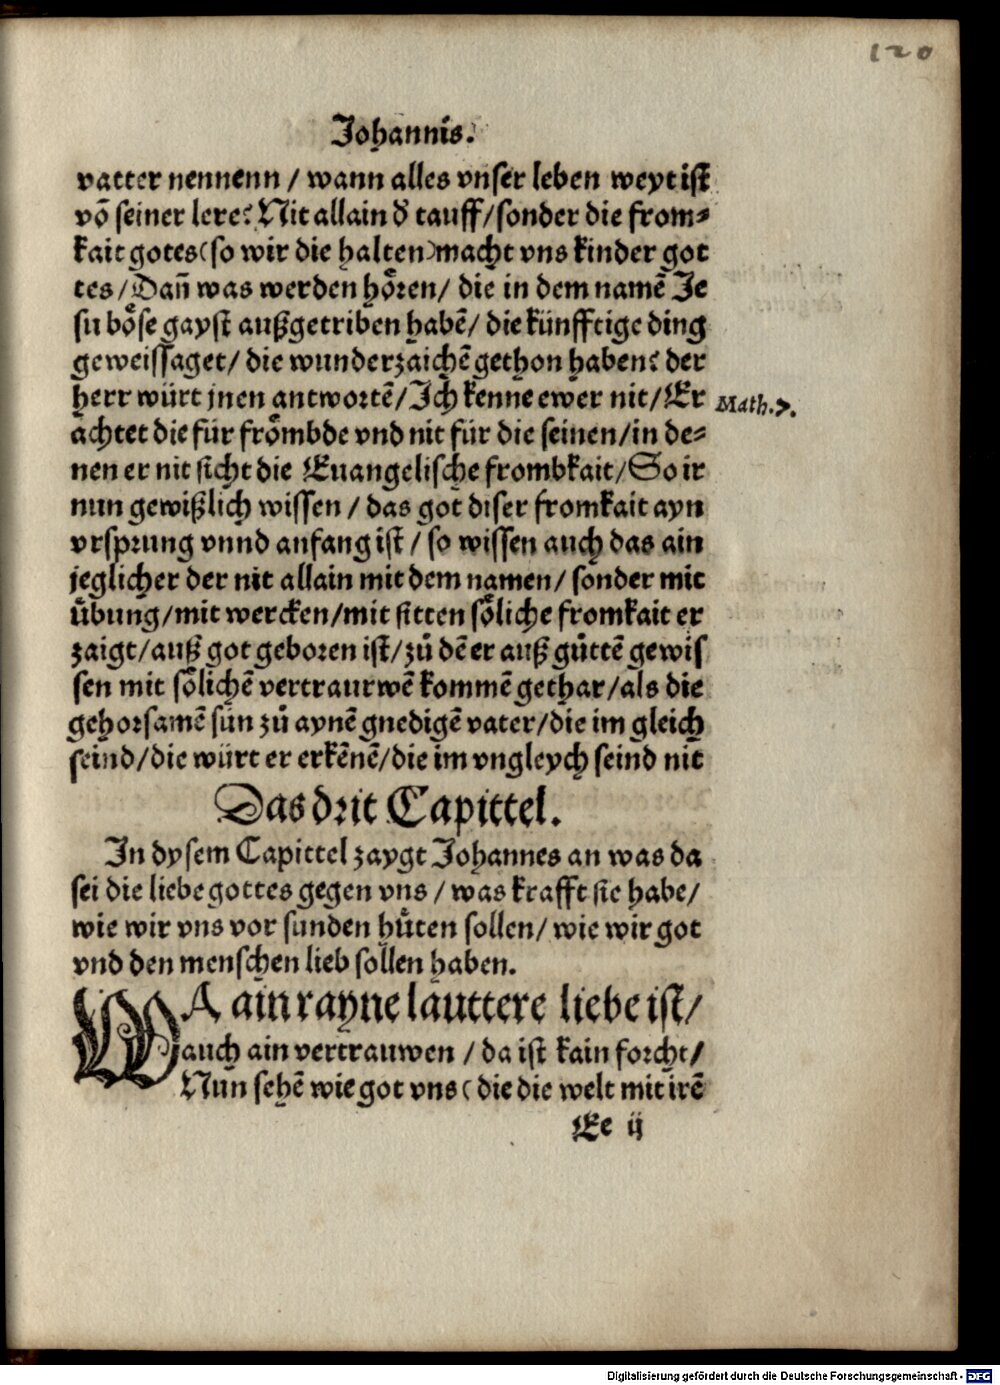 120
Johannis.
vatter nennenn / wann alles vnser leben weyt ist
võ seiner lere? Nit allain d̕ tauff/sonder die from⸗
kait gotes(so wir die halten)macht vns kinder got
tes/Dañ was werden hoͤren/ die in dem namẽ Je
su boͤse gayst außgetriben habẽ/ die künfftige ding
geweissaget/ die wunderzaichẽ gethon haben? der
herr würt jnen antwortẽ/Ich kenne ewer nit/Er
achtet die für froͤmbde vnd nit für die seinen/in de⸗
nen er nit sicht die Euangelische frombkait/So ir
nun gewißlich wissen / das got diser fromkait ayn
vrsprung vnnd anfang ist / so wissen auch das ain
jeglicher der nit allain mit dem namen/ sonder mit
uͤbung/mit wercken/mit sitten soͤliche fromkait er
zaigt/auß got geboren ist/zů dẽ er auß gůttẽ gewis
sen mit soͤlichẽ vertraurwẽ kommẽ gethar/als die
gehorsamẽ sün zů aynẽ gnedigẽ vater/die im gleich
seind/die würt er erkẽnẽ/die im vngleych seind nit
Math.7.
Das drit Capittel.
In dysem Capittel zaygt Johannes an was da
sei die liebe gottes gegen vns / was krafft sie habe/
wie wir vns vor sunden huͤten sollen/ wie wir got
vnd den menschen lieb sollen haben.
WA ain rayne lauttere liebe ist/
auch ain vertrauwen / da ist kain forcht/
Nun sehẽ wie got vns( die die welt mit irẽ
Ee ij
Digitalisierung gefördert durch die Deutsche Forschungsgemeinschaft - DFG